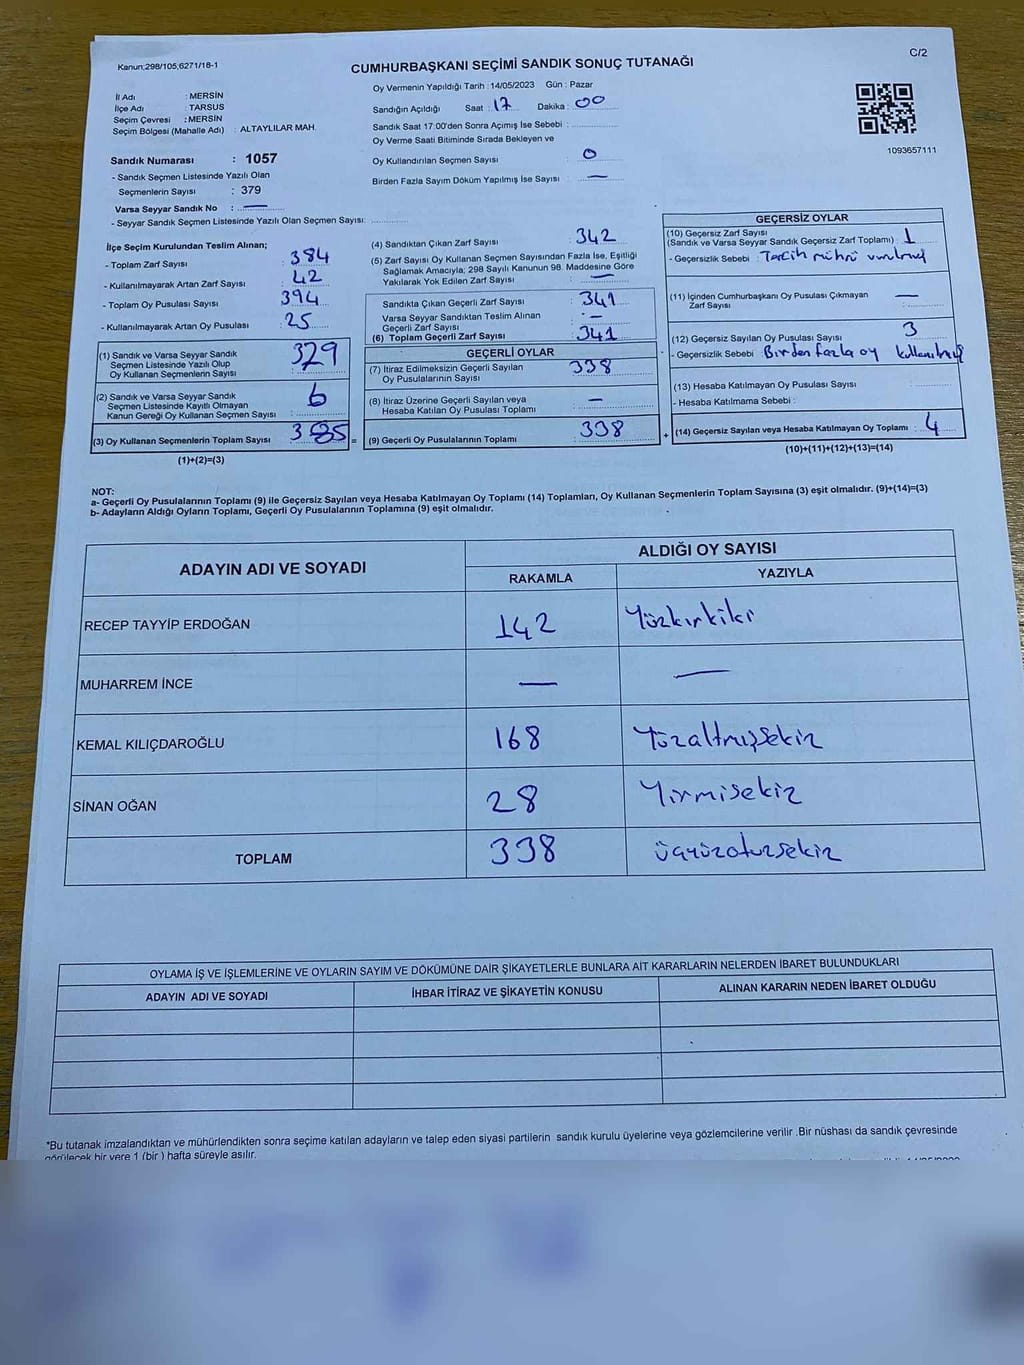 Kanun;298/105;6271/18-1
C/2
CUMHURBAŞKANI SEÇİMİ SANDIK SONUÇ TUTANAĞI
İl Adı : MERSİN
İlçe Adı : TARSUS
Seçim Çevresi : MERSİN
Seçim Bölgesi (Mahalle Adı) : ALTAYLILAR MAH.
Sandık Numarası : 1057
- Sandık Seçmen Listesinde Yazılı Olan
Seçmenlerin Sayısı : 379
Varsa Seyyar Sandık No : —
- Seyyar Sandık Seçmen Listesinde Yazılı Olan Seçmen Sayısı: ............
Oy Vermenin Yapıldığı Tarih : 14/05/2023 Gün : Pazar
Sandığın Açıldığı Saat : 17 Dakika : 00
Sandık Saat 17:00'den Sonra Açımış İse Sebebi : ............
Oy Verme Saati Bitiminde Sırada Bekleyen ve
Oy Kullandırılan Seçmen Sayısı : 0
Birden Fazla Sayım Döküm Yapılmış İse Sayısı : —
1093657111
İlçe Seçim Kurulundan Teslim Alınan;
- Toplam Zarf Sayısı : 384
- Kullanılmayarak Artan Zarf Sayısı : 42
- Toplam Oy Pusulası Sayısı : 394
- Kullanılmayarak Artan Oy Pusulası : 25
(1) Sandık ve Varsa Seyyar Sandık
Seçmen Listesinde Yazılı Olup
Oy Kullanan Seçmenlerin Sayısı : 329
(2) Sandık ve Varsa Seyyar Sandık
Seçmen Listesinde Kayıtlı Olmayan
Kanun Gereği Oy Kullanan Seçmen Sayısı : 6
(3) Oy Kullanan Seçmenlerin Toplam Sayısı =
(1)+(2)=(3)
(4) Sandıktan Çıkan Zarf Sayısı : 342
(5) Zarf Sayısı Oy Kullanan Seçmen Sayısından Fazla İse, Eşitliği
Sağlamak Amacıyla; 298 Sayılı Kanunun 98. Maddesine Göre
Yakılarak Yok Edilen Zarf Sayısı : —
Sandıkta Çıkan Geçerli Zarf Sayısı : 341
Varsa Seyyar Sandıktan Teslim Alınan
Geçerli Zarf Sayısı : —
(6) Toplam Geçerli Zarf Sayısı : 341
GEÇERLİ OYLAR
(7) İtiraz Edilmeksizin Geçerli Sayılan
Oy Pusulalarının Sayısı : 338
(8) İtiraz Üzerine Geçerli Sayılan veya
Hesaba Katılan Oy Pusulası Toplamı : —
(9) Geçerli Oy Pusulalarının Toplamı : 338 +
GEÇERSİZ OYLAR
(10) Geçersiz Zarf Sayısı
(Sandık ve Varsa Seyyar Sandık Geçersiz Zarf Toplamı) : 1
- Geçersizlik Sebebi : Tercih mührü
(11) İçinden Cumhurbaşkanı Oy Pusulası Çıkmayan
Zarf Sayısı : —
(12) Geçersiz Sayılan Oy Pusulası Sayısı : 3
- Geçersizlik Sebebi : Birden fazla oy
(13) Hesaba Katılmayan Oy Pusulası Sayısı : ............
- Hesaba Katılmama Sebebi :
(14) Geçersiz Sayılan veya Hesaba Katılmayan Oy Toplamı : 4
(10)+(11)+(12)+(13)=(14)
NOT:
a- Geçerli Oy Pusulalarının Toplamı (9) ile Geçersiz Sayılan veya Hesaba Katılmayan Oy Toplamı (14) Toplamları, Oy Kullanan Seçmenlerin Toplam Sayısına (3) eşit olmalıdır. (9)+(14)=(3)
b- Adayların Aldığı Oyların Toplamı, Geçerli Oy Pusulalarının Toplamına (9) eşit olmalıdır.
ADAYIN ADI VE SOYADI ALDIĞI OY SAYISI
RAKAMLA YAZIYLA
RECEP TAYYİP ERDOĞAN 142 Yüzkırkiki
MUHARREM İNCE — —
KEMAL KILIÇDAROĞLU 168 Yüzaltmışsekiz
SİNAN OĞAN 28 Yirmisekiz
TOPLAM 338 üçyüzotuzsekiz
OYLAMA İŞ VE İŞLEMLERİNE VE OYLARIN SAYIM VE DÖKÜMÜNE DAİR ŞİKAYETLERLE BUNLARA AİT KARARLARIN NELERDEN İBARET BULUNDUKLARI
ADAYIN ADI VE SOYADI İHBAR İTİRAZ VE ŞİKAYETİN KONUSU ALINAN KARARIN NEDEN İBARET OLDUĞU
*Bu tutanak imzalandıktan ve mühürlendikten sonra seçime katılan adayların ve talep eden siyasi partilerin sandık kurulu üyelerine veya gözlemcilerine verilir .Bir nüshası da sandık çevresinde
görülecek bir yere 1 (bir ) hafta süreyle asılır.